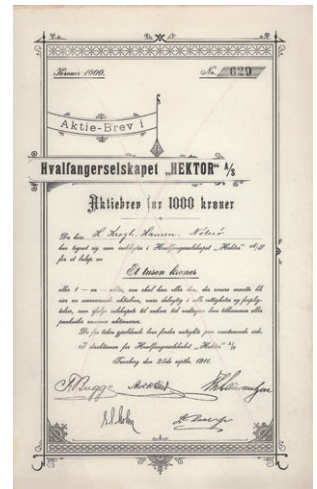 Kroner 1000. No. 629
Aktie-Brev i
Hvalfangerselskapet „HEKTOR“ A/S
Aktiebrev for 1000 kroner
Da herr H. Krogh-Hansen, Nøterö
har tegnet sig som andelseier i Hvalfangerselskapet „Hektor“ A/S
for et beløp av
Et tusen kroner
eller 1 – en – aktie, saa skal han eller den, der senere maatte bli
eier av nærværende aktiebrev, være delagtig i alle rettigheter og forplig-
telser, som ifølge selskapets til enhver tid vedtagne love tilkommer eller
paahviler samme aktionærer.
De for tiden gjældende love findes avtrykte paa omstaaende side.
I direktionen for Hvalfangerselskabet „Hektor“ A/S
Tønsberg den 25de septbr. 1911.
A. Bugge